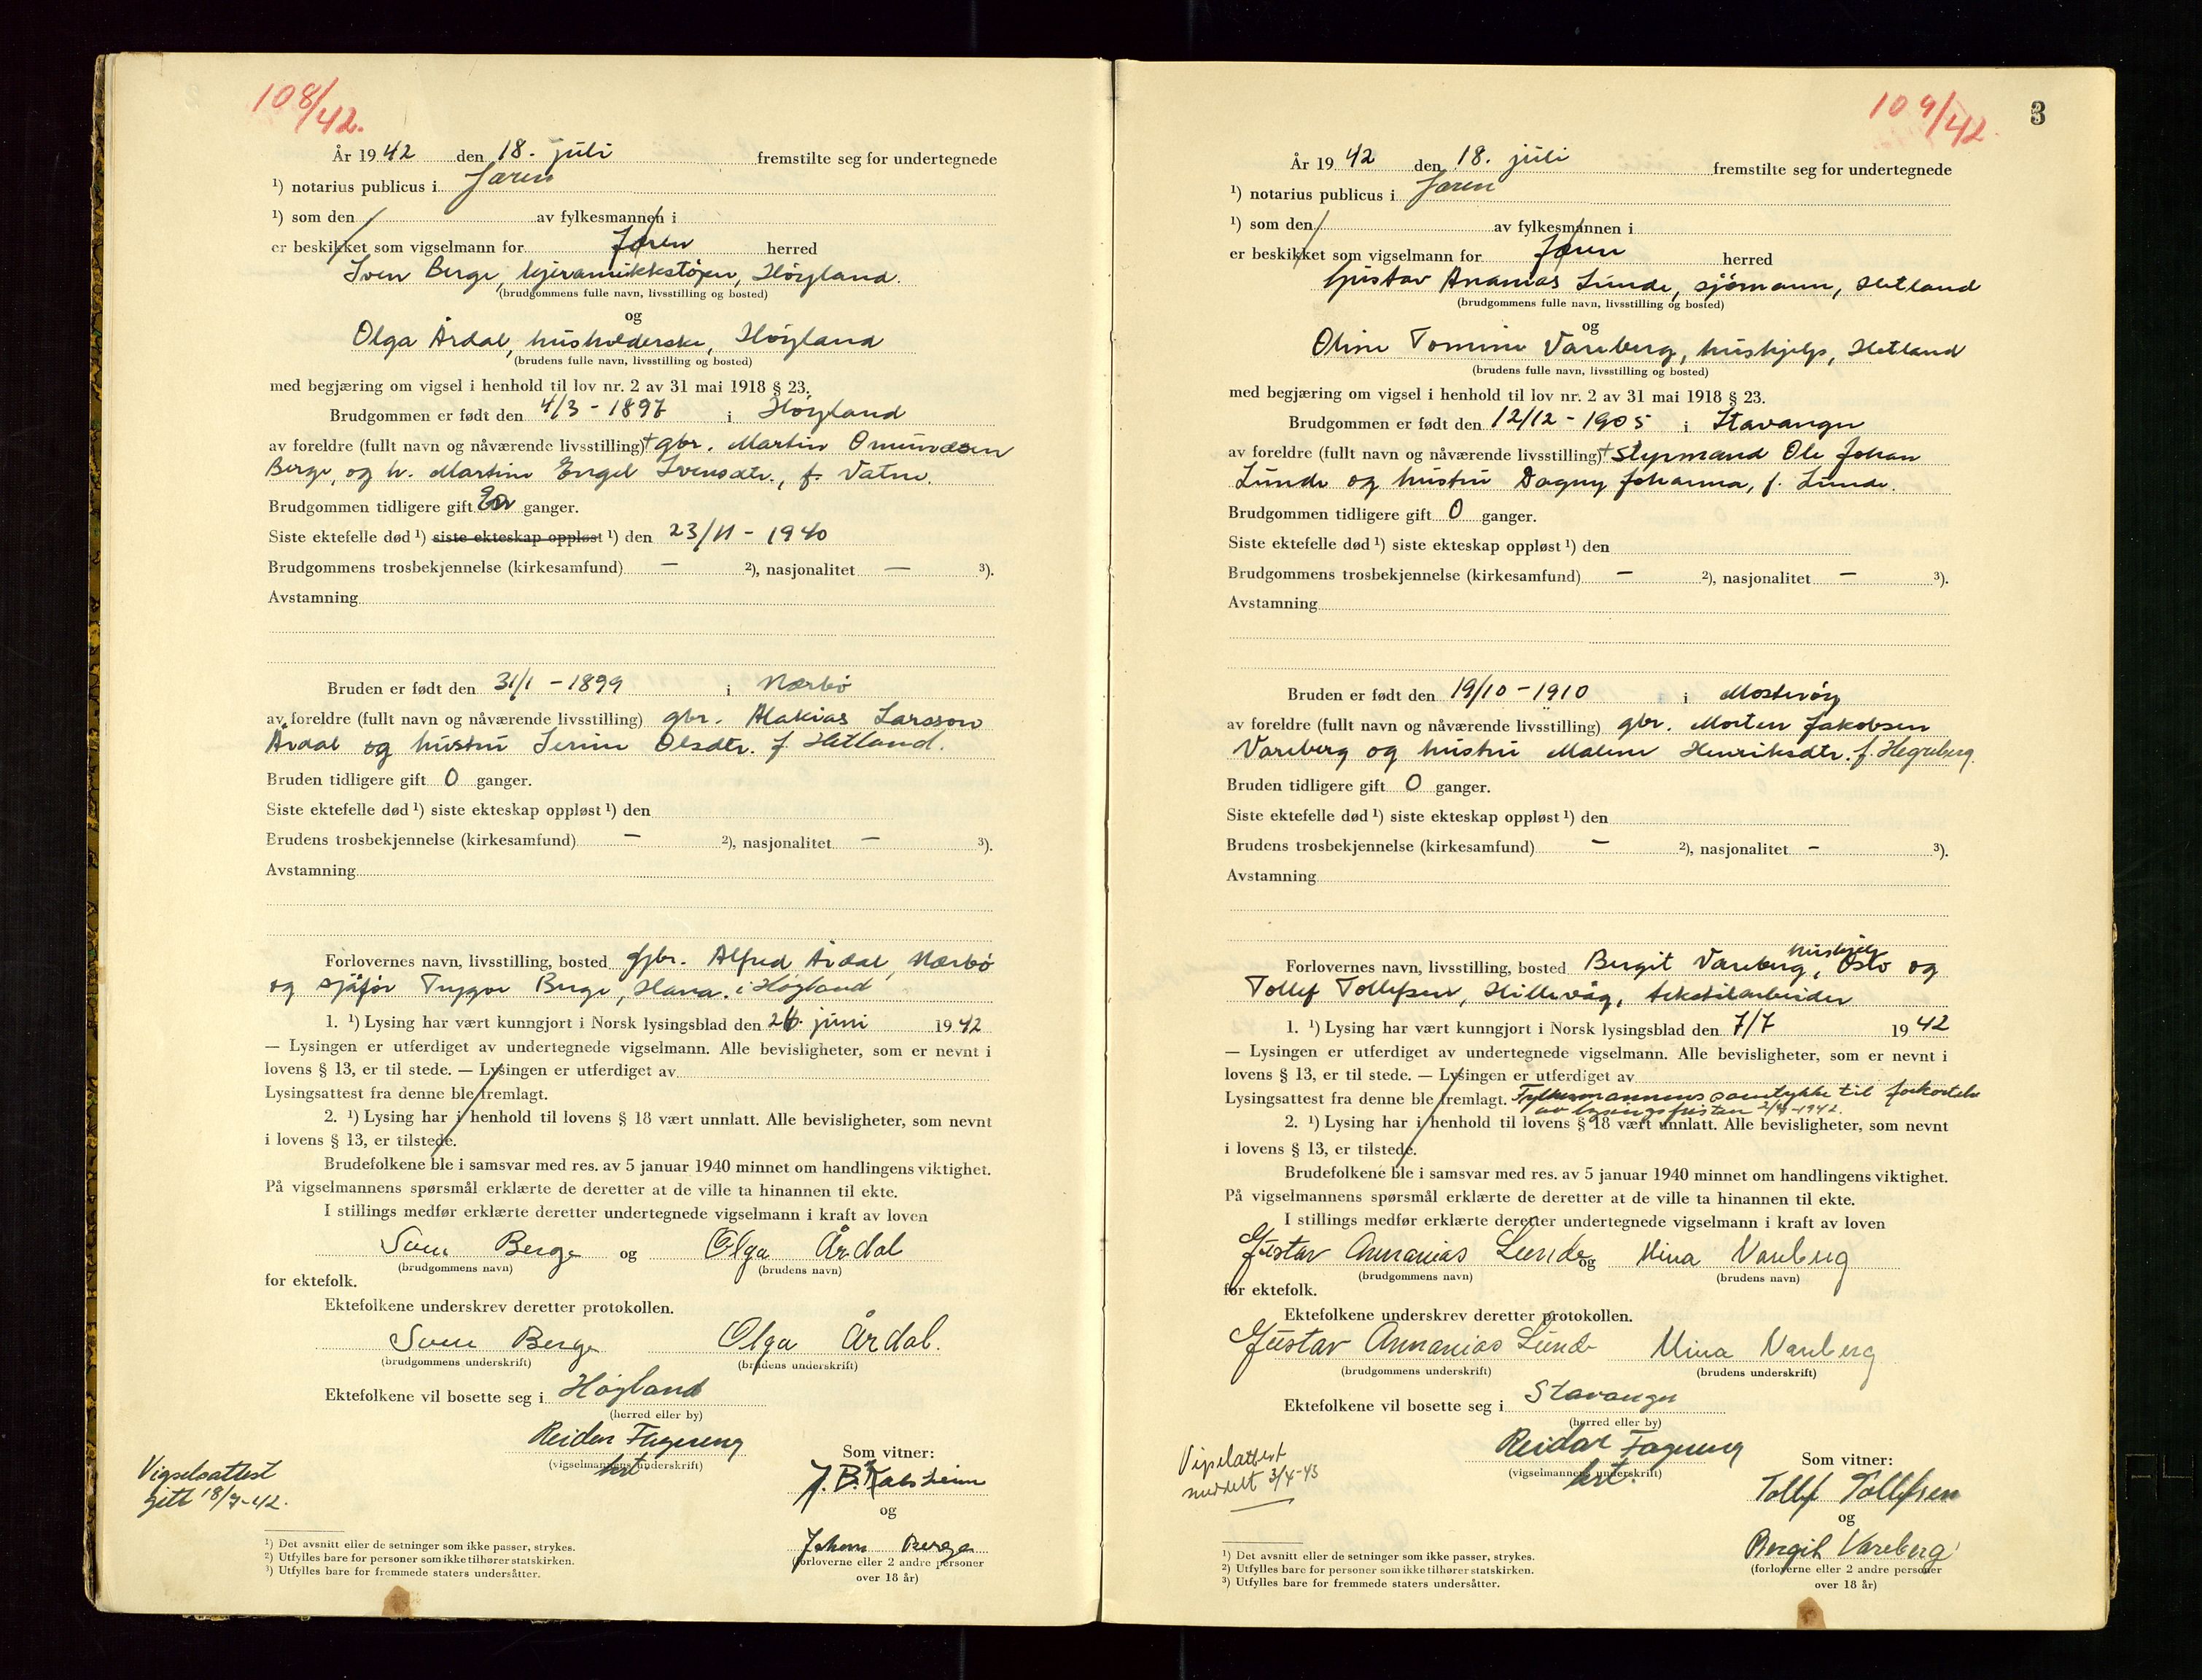 108/42.
År 1942 den 18. juli fremstilte seg for undertegnede
¹) notarius publicus i Jæren
¹) som den av fylkesmannen i
er beskikket som vigselmann for Jæren herred
Sven Berge, Høyland.
(brudgommens fulle navn, livsstilling og bosted)
og
Olga Årdal, husholderske, Høyland
(brudens fulle navn, livsstilling og bosted)
med begjæring om vigsel i henhold til lov nr. 2 av 31 mai 1918 § 23.
Brudgommen er født den 4/3 - 1897 i Høyland
av foreldre (fullt navn og nåværende livsstilling) † gbr. Martin Omundsen
Berge, og h. Martine Engel Svensdtr., f. Vatne.
Brudgommen tidligere gift ganger.
Siste ektefelle død ¹) siste ekteskap oppløst ¹) den 23/11 - 1940
Brudgommens trosbekjennelse (kirkesamfund) — ²), nasjonalitet — ³).
Avstamning
Bruden er født den 31/1 - 1899 i Nærbø
av foreldre (fullt navn og nåværende livsstilling) gbr. Malakias Larsson
Årdal og hustru Serine Olsdtr. f. Hetland.
Bruden tidligere gift 0 ganger.
Siste ektefelle død ¹) siste ekteskap oppløst ¹) den
Brudens trosbekjennelse (kirkesamfund) — ²), nasjonalitet — ³).
Avstamning
Forlovernes navn, livsstilling, bosted gbr. Alfred Årdal, Nærbø
og sjåfør Trygve Berge, Hana. i Høyland
1. ¹) Lysing har vært kunngjort i Norsk lysingsblad den 26. juni 1942
— Lysingen er utferdiget av undertegnede vigselmann. Alle bevisligheter, som er nevnt i
lovens § 13, er til stede. — Lysingen er utferdiget av
Lysingsattest fra denne ble fremlagt.
2. ¹) Lysing har i henhold til lovens § 18 vært unnlatt. Alle bevisligheter, som nevnt
i lovens § 13, er tilstede.
Brudefolkene ble i samsvar med res. av 5 januar 1940 minnet om handlingens viktighet.
På vigselmannens spørsmål erklærte de deretter at de ville ta hinannen til ekte.
I stillings medfør erklærte deretter undertegnede vigselmann i kraft av loven
Sven Berge og Olga Årdal
(brudgommens navn) (brudens navn)
for ektefolk.
Ektefolkene underskrev deretter protokollen.
Sven Berge Olga Årdal.
(brudgommens underskrift) (brudens underskrift)
Ektefolkene vil bosette seg i Høyland
(herred eller by)
Reidar Fagereng
(vigselmannens underskrift)
Som vitner:
og
Johan Berge
(forloverne eller 2 andre personer
over 18 år)
Vigselsattest
gitt 18/7-42.
¹) Det avsnitt eller de setninger som ikke passer, strykes.
²) Utfylles bare for personer som ikke tilhører statskirken.
³) Utfylles bare for fremmede staters undersåtter.
109/42
3
År 1942 den 18. juli fremstilte seg for undertegnede
¹) notarius publicus i Jæren
¹) som den av fylkesmannen i
er beskikket som vigselmann for Jæren herred
Gustav Ananias Lunde, sjømann, Hetland
(brudgommens fulle navn, livsstilling og bosted)
og
Oline Tomine Vareberg, hushjelp, Hetland
(brudens fulle navn, livsstilling og bosted)
med begjæring om vigsel i henhold til lov nr. 2 av 31 mai 1918 § 23.
Brudgommen er født den 12/12 - 1905 i Stavanger
av foreldre (fullt navn og nåværende livsstilling) † styrmand Ole Johan
Lunde og hustru Dagny Johanna, f. Lunde.
Brudgommen tidligere gift 0 ganger.
Siste ektefelle død ¹) siste ekteskap oppløst ¹) den
Brudgommens trosbekjennelse (kirkesamfund) — ²), nasjonalitet — ³).
Avstamning
Bruden er født den 19/10 - 1910 i Mosterøy
av foreldre (fullt navn og nåværende livsstilling) gbr. Morten Jakobsen
Vareberg og hustru Malene Henriksdtr. f. Hegreberg
Bruden tidligere gift 0 ganger.
Siste ektefelle død ¹) siste ekteskap oppløst ¹) den
Brudens trosbekjennelse (kirkesamfund) — ²), nasjonalitet — ³).
Avstamning
Forlovernes navn, livsstilling, bosted Bergit Vareberg, hushjelp Oslo og
Tollef Tollefsen, Hillevåg, tekstilarbeider
1. ¹) Lysing har vært kunngjort i Norsk lysingsblad den 7/7 1942
— Lysingen er utferdiget av undertegnede vigselmann. Alle bevisligheter, som er nevnt i
lovens § 13, er til stede. — Lysingen er utferdiget av
Lysingsattest fra denne ble fremlagt. Fylkesmannens samtykke til forkortelse
av lysingsfristen 2/7-1942.
2. ¹) Lysing har i henhold til lovens § 18 vært unnlatt. Alle bevisligheter, som nevnt
i lovens § 13, er tilstede.
Brudefolkene ble i samsvar med res. av 5 januar 1940 minnet om handlingens viktighet.
På vigselmannens spørsmål erklærte de deretter at de ville ta hinannen til ekte.
I stillings medfør erklærte deretter undertegnede vigselmann i kraft av loven
Gustav Annanias Lunde og Mina Vareberg
(brudgommens navn) (brudens navn)
for ektefolk.
Ektefolkene underskrev deretter protokollen.
Gustav Annanias Lunde Mina Vareberg
(brudgommens underskrift) (brudens underskrift)
Ektefolkene vil bosette seg i Stavanger
(herred eller by)
Reidar Fagereng
(vigselmannens underskrift)
Som vitner:
Tollef Tollefsen
og
Bergit Vareberg
(forloverne eller 2 andre personer
over 18 år)
Vigselattest
meddelt 3/4-43
¹) Det avsnitt eller de setninger som ikke passer, strykes.
²) Utfylles bare for personer som ikke tilhører statskirken.
³) Utfylles bare for fremmede staters undersåtter.